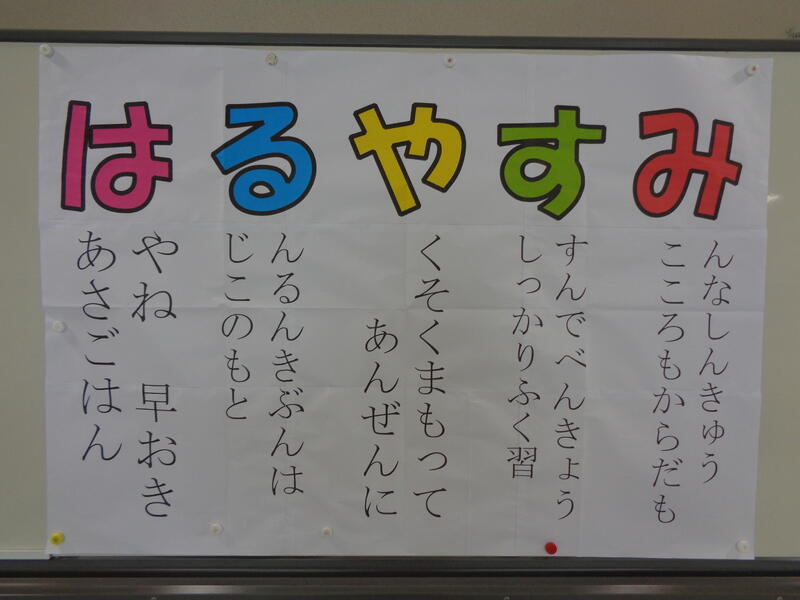 はるやすみ
やね　早おき
あさごはん
んるんきぶんは
じこのもと
くそくまもって
あんぜんに
すんでべんきょう
しっかりふく習
んなしんきゅう
こころもからだも